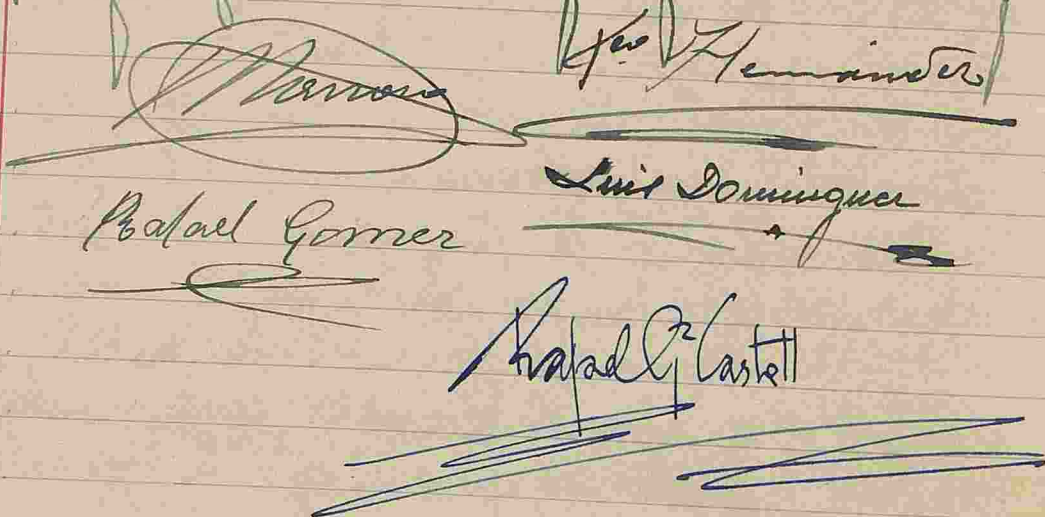 Fco. Hernández
Luis Dominguez
Rafael Gomez
Rafael Gz Castell